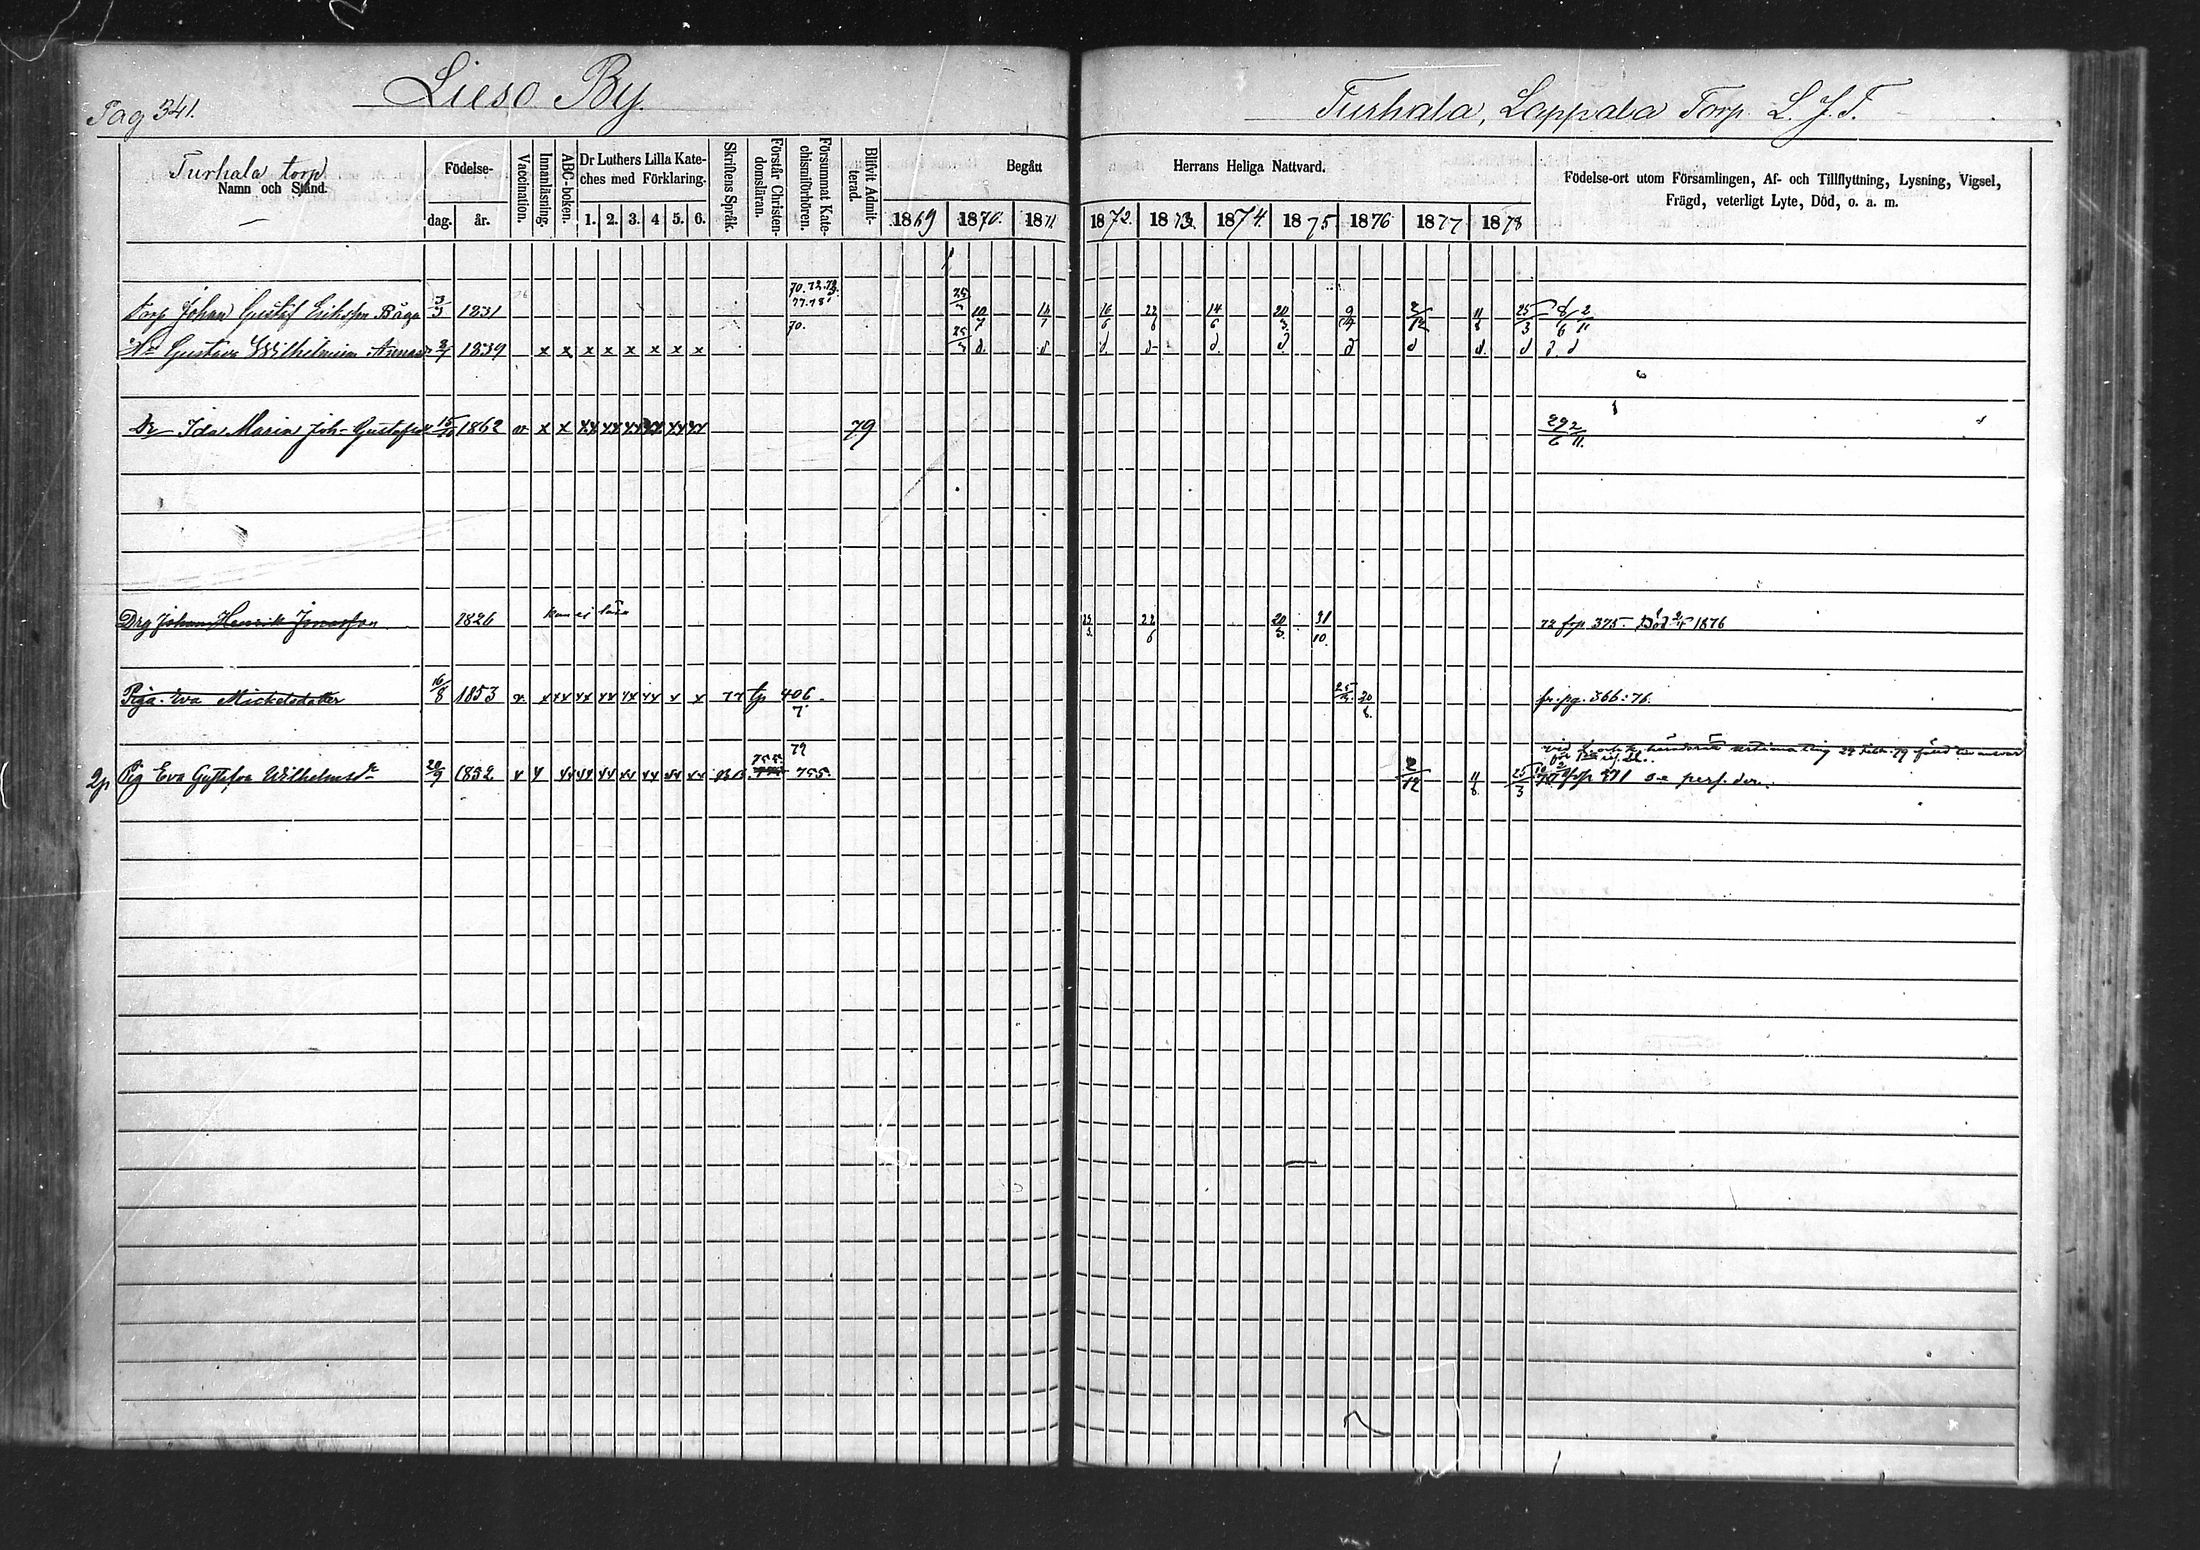 Pag 341.
Lieso By.
Turhala, Lappala Torp. L. J. T.
Turhala torp
Namn och Stånd.
Födelse-
dag. år.
Vaccination.
Innanläsning.
ABC-boken.
Dr Luthers Lilla Kate-
ches med Förklaring.
1. 2. 3. 4 5. 6.
Skriftens Språk.
Förstår Christen-
domsläran.
Försummat Kate-
chismiförhören.
Blifvit Admit-
terad.
Begått
Herrans Heliga Nattvard.
1869 1870. 1871.
1872. 1873. 1874. 1875 1876 1877 1878
Födelse-ort utom Församlingen, Af- och Tillflyttning, Lysning, Vigsel,
Frägd, veterligt Lyte, Död, o. a. m.
70. 72. 73.
77. 78
Torp Johan Gustaf Eriksson 3/3 1831 25 10/7 14/7 16/6 22/6 14/6 20/3 9 2/12 11/8 25/3 8/6 2/11
70.
Gustava Wilhelmina 1839 x x x x x x x x d. d d. d d. d d d d. d d. d
Dr Ida Maria Joh. Gustafsd 15/10 1862 v x x xx xx xx xx xx xx 79 29/6 2/11.
Drg Johan Henrik 1826 kan ej läsa 22/6 20/3 31/10. 72 frp 375. Död 1876
Piga Eva Michelsdotter 16/8 1853 v. x xx xx xx xx xx x x 77 tp 406/7. 20/8. fr. pg. 366: 76.
79
755
2p Pig Eva Gustafva Wilhelmsd 20/9 1852 x x xx xx xx xx xx xx xx 755. 2/12 11/8. 25/3 frp 371 s.e perf. der.